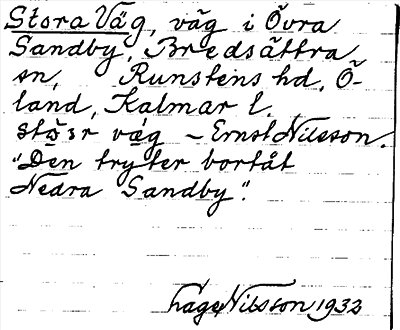 Stora Väg, väg i Övra
Sandby, Bredsättra
sn, Runstens hd, Ö-
land, Kalmar l.
väg – Ernst Nilsson.
"Den tryter bortåt
Nedra Sandby".
Nilsson 1933